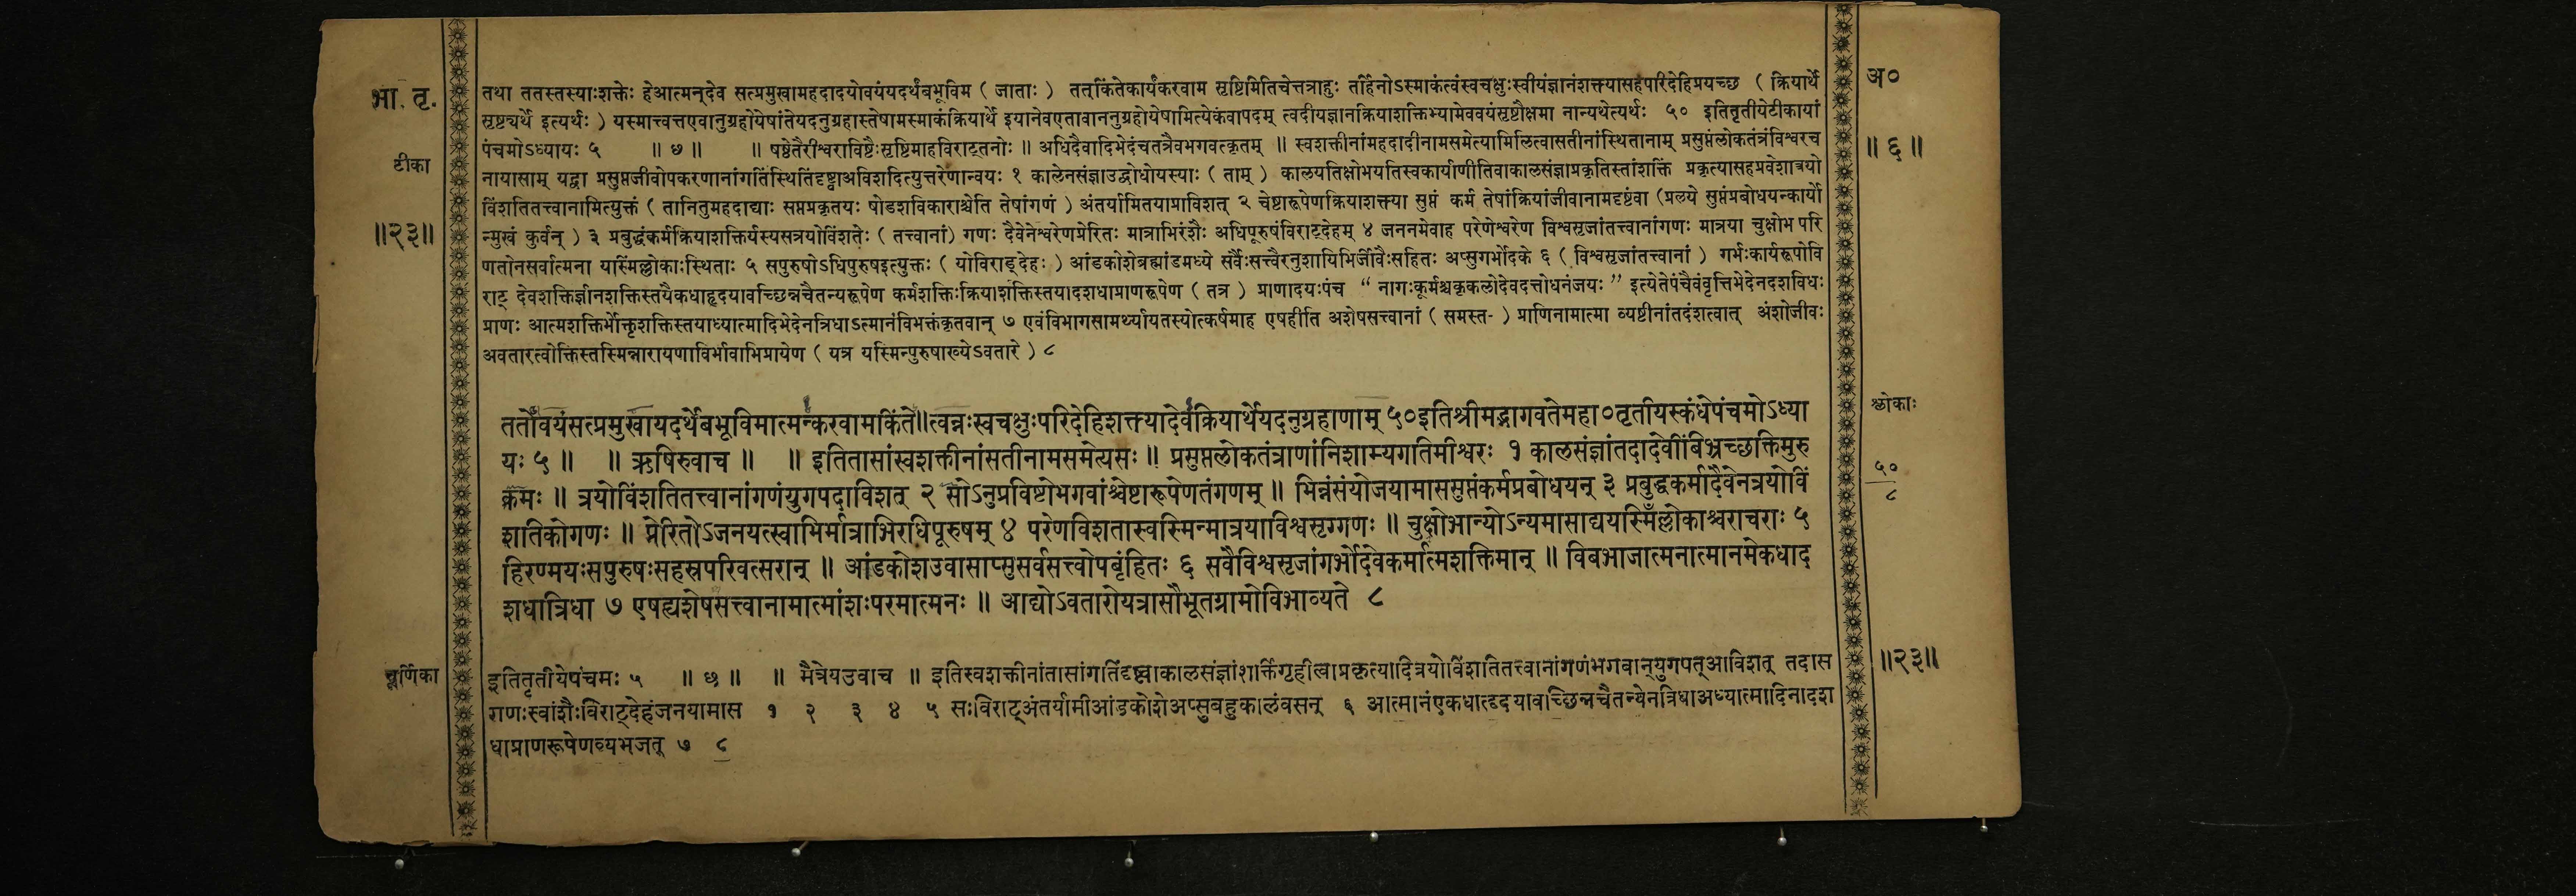 भा. तृ.
अ०
तथा ततस्तस्याःशक्तेः हेआत्मन्देव सत्प्रमुखामहदादयोवयंयदर्थंबभूविम ( जाताः ) तत्किंतेकार्यंकरवाम सृष्टिमितिचेत्तत्राहुः तर्हिनोऽस्माकंत्वंस्वचक्षुःस्वीयंज्ञानंशक्त्यासहपरिदेहिप्रयच्छ ( क्रियार्थे
सृष्ट्यर्थे इत्यर्थः ) यस्मात्त्वत्तएवानुग्रहोयेषांतेयदनुग्रहास्तेषामस्माकंक्रियार्थे इयानेवएतावाननुग्रहोयेषामित्येकंवापदम् त्वदीयज्ञानक्रियाशक्तिभ्यामेववयंसृष्टौक्षमा नान्यथेत्यर्थः ५० इतितृतीयेटीकायां
पंचमोऽध्यायः ५ ॥ छ ॥ ॥ षष्ठेतैरीश्वराविष्टैःसृष्टिमाहविराट्तनोः ॥ अधिदैवादिभेदंचतत्रैवभगवत्कृतम् ॥ स्वशक्तीनांमहदादीनामसमेत्यामिलित्वासतीनांस्थितानाम् प्रसुप्तंलोकतंत्रंविश्वरच
॥ ६ ॥
टीका
नायासाम् यद्वा प्रसुप्तजीवोपकरणानांगतिंस्थितिंदृष्ट्वाअविशदित्युत्तरेणान्वयः १ कालेनसंज्ञाउद्बोधोयस्याः ( ताम् ) कालयतिक्षोभयतिस्वकार्याणीतिवाकालसंज्ञाप्रकृतिस्तांशक्तिं प्रकृत्यासहप्रवेशात्रयो
विंशतितत्त्वानामित्युक्तं ( तानितुमहदाद्याः सप्तप्रकृतयः षोडशविकाराश्चेति तेषांगणं ) अंतर्यामितयाप्राविशत् २ चेष्टारूपेणक्रियाशक्त्या सुप्तं कर्म तेषांक्रियांजीवानामदृष्टंवा (प्रलये सुप्तंप्रबोधयन्कार्यो
॥२३॥
न्मुखं कुर्वन् ) ३ प्रबुद्धंकर्मक्रियाशक्तिर्यस्यसत्रयोविंशतेः ( तत्त्वानां) गणः दैवेनेश्वरेणप्रेरितः मात्राभिरंशैः अधिपूरुषंविराट्देहम् ४ जननमेवाह परेणेश्वरेण विश्वसृजांतत्त्वानांगणः मात्रया चुक्षोभ परि
णतोनसर्वात्मना यस्मिंल्लोकाःस्थिताः ५ सपुरुषोऽधिपुरुषइत्युक्तः ( योविराड्देहः ) आंडकोशेब्रह्मांडमध्ये सर्वैःसत्त्वैरनुशायिभिर्जीवैःसहितः अप्सुगर्भोदके ६ ( विश्वसृजांतत्त्वानां ) गर्भःकार्यरूपोवि
राट् देवशक्तिर्ज्ञानशक्तिस्तयैकधाहृदयावच्छिन्नचैतन्यरूपेण कर्मशक्तिःक्रियाशक्तिस्तयादशधाप्राणरूपेण ( तत्र ) प्राणादयःपंच “ नागःकूर्मश्चकृकलोदेवदत्तोधनंजयः ” इत्येतेपंचैवंवृत्तिभेदेनदशविधः
प्राणः आत्मशक्तिर्भोक्तृशक्तिस्तयाध्यात्मादिभेदेनत्रिधाऽत्मानंविभक्तंकृतवान् ७ एवंविभागसामर्थ्यायतस्योत्कर्षमाह एषहीति अशेषसत्त्वानां ( समस्त- ) प्राणिनामात्मा व्यष्टीनांतदंशत्वात् अंशोजीवः
अवतारत्वोक्तिस्तस्मिन्नारायणाविर्भावाभिप्रायेण ( यत्र यस्मिन्पुरुषाख्येऽवतारे ) ८
ततोवयंसत्प्रमुखायदर्थेबभूविमात्मन्करवामकिंते॥त्वन्नःस्वचक्षुःपरिदेहिशक्त्यादेवक्रियार्थेयदनुग्रहाणाम् ५०इतिश्रीमद्भागवतेमहा०तृतीयस्कंधेपंचमोऽध्या
श्लोकाः
यः ५ ॥ ॥ ऋषिरुवाच ॥ ॥ इतितासांस्वशक्तीनांसतीनामसमेत्यसः ॥ प्रसुप्तलोकतंत्राणांनिशाम्यगतिमीश्वरः १ कालसंज्ञांतदादेवींबिभ्रच्छक्तिमुरु
५०
८
क्रमः ॥ त्रयोविंशतितत्त्वानांगणंयुगपदाविशत् २ सोऽनुप्रविष्टोभगवांश्चेष्टारूपेणतंगणम् ॥ भिन्नंसंयोजयामाससुप्तंकर्मप्रबोधयन् ३ प्रबुद्धकर्मादैवेनत्रयोविं
शतिकोगणः ॥ प्रेरितोऽजनयत्स्वाभिर्मात्राभिरधिपूरुषम् ४ परेणविशतास्वस्मिन्मात्रयाविश्वसृग्गणः ॥ चुक्षोभान्योऽन्यमासाद्ययस्मिँल्लोकाश्चराचराः ५
हिरण्मयःसपुरुषःसहस्रपरिवत्सरान् ॥ आंडकोशउवासाप्सुसर्वसत्त्वोपबृंहितः ६ सवैविश्वसृजांगर्भोदेवकर्मात्मशक्तिमान् ॥ विबभाजात्मनात्मानमेकधाद
शधात्रिधा ७ एषह्यशेषसत्त्वानामात्मांशःपरमात्मनः ॥ आद्योऽवतारोयत्रासौभूतग्रामोविभाव्यते ८
चूर्णिका
इतितृतीयेपंचमः ५ ॥ छ ॥ ॥ मैत्रेयउवाच ॥ इतिस्वशक्तीनांतासांगतिंदृष्ट्वाकालसंज्ञांशक्तिंगृहीत्वाप्रकृत्यादित्रयोविंशतितत्त्वानांगणंभगवान्युगपत्आविशत् तदास
॥२३॥
गणःस्वांशैःविराट्देहंजनयामास १ २ ३ ४ ५ सःविराट्अंतर्यामीआंडकोशेअप्सुबहुकालंवसन् ६ आत्मानंएकधात्हृदयावच्छिन्नचैतन्येनत्रिधाअध्यात्मादिनादश
धाप्राणरूपेणव्यभजत् ७ ८